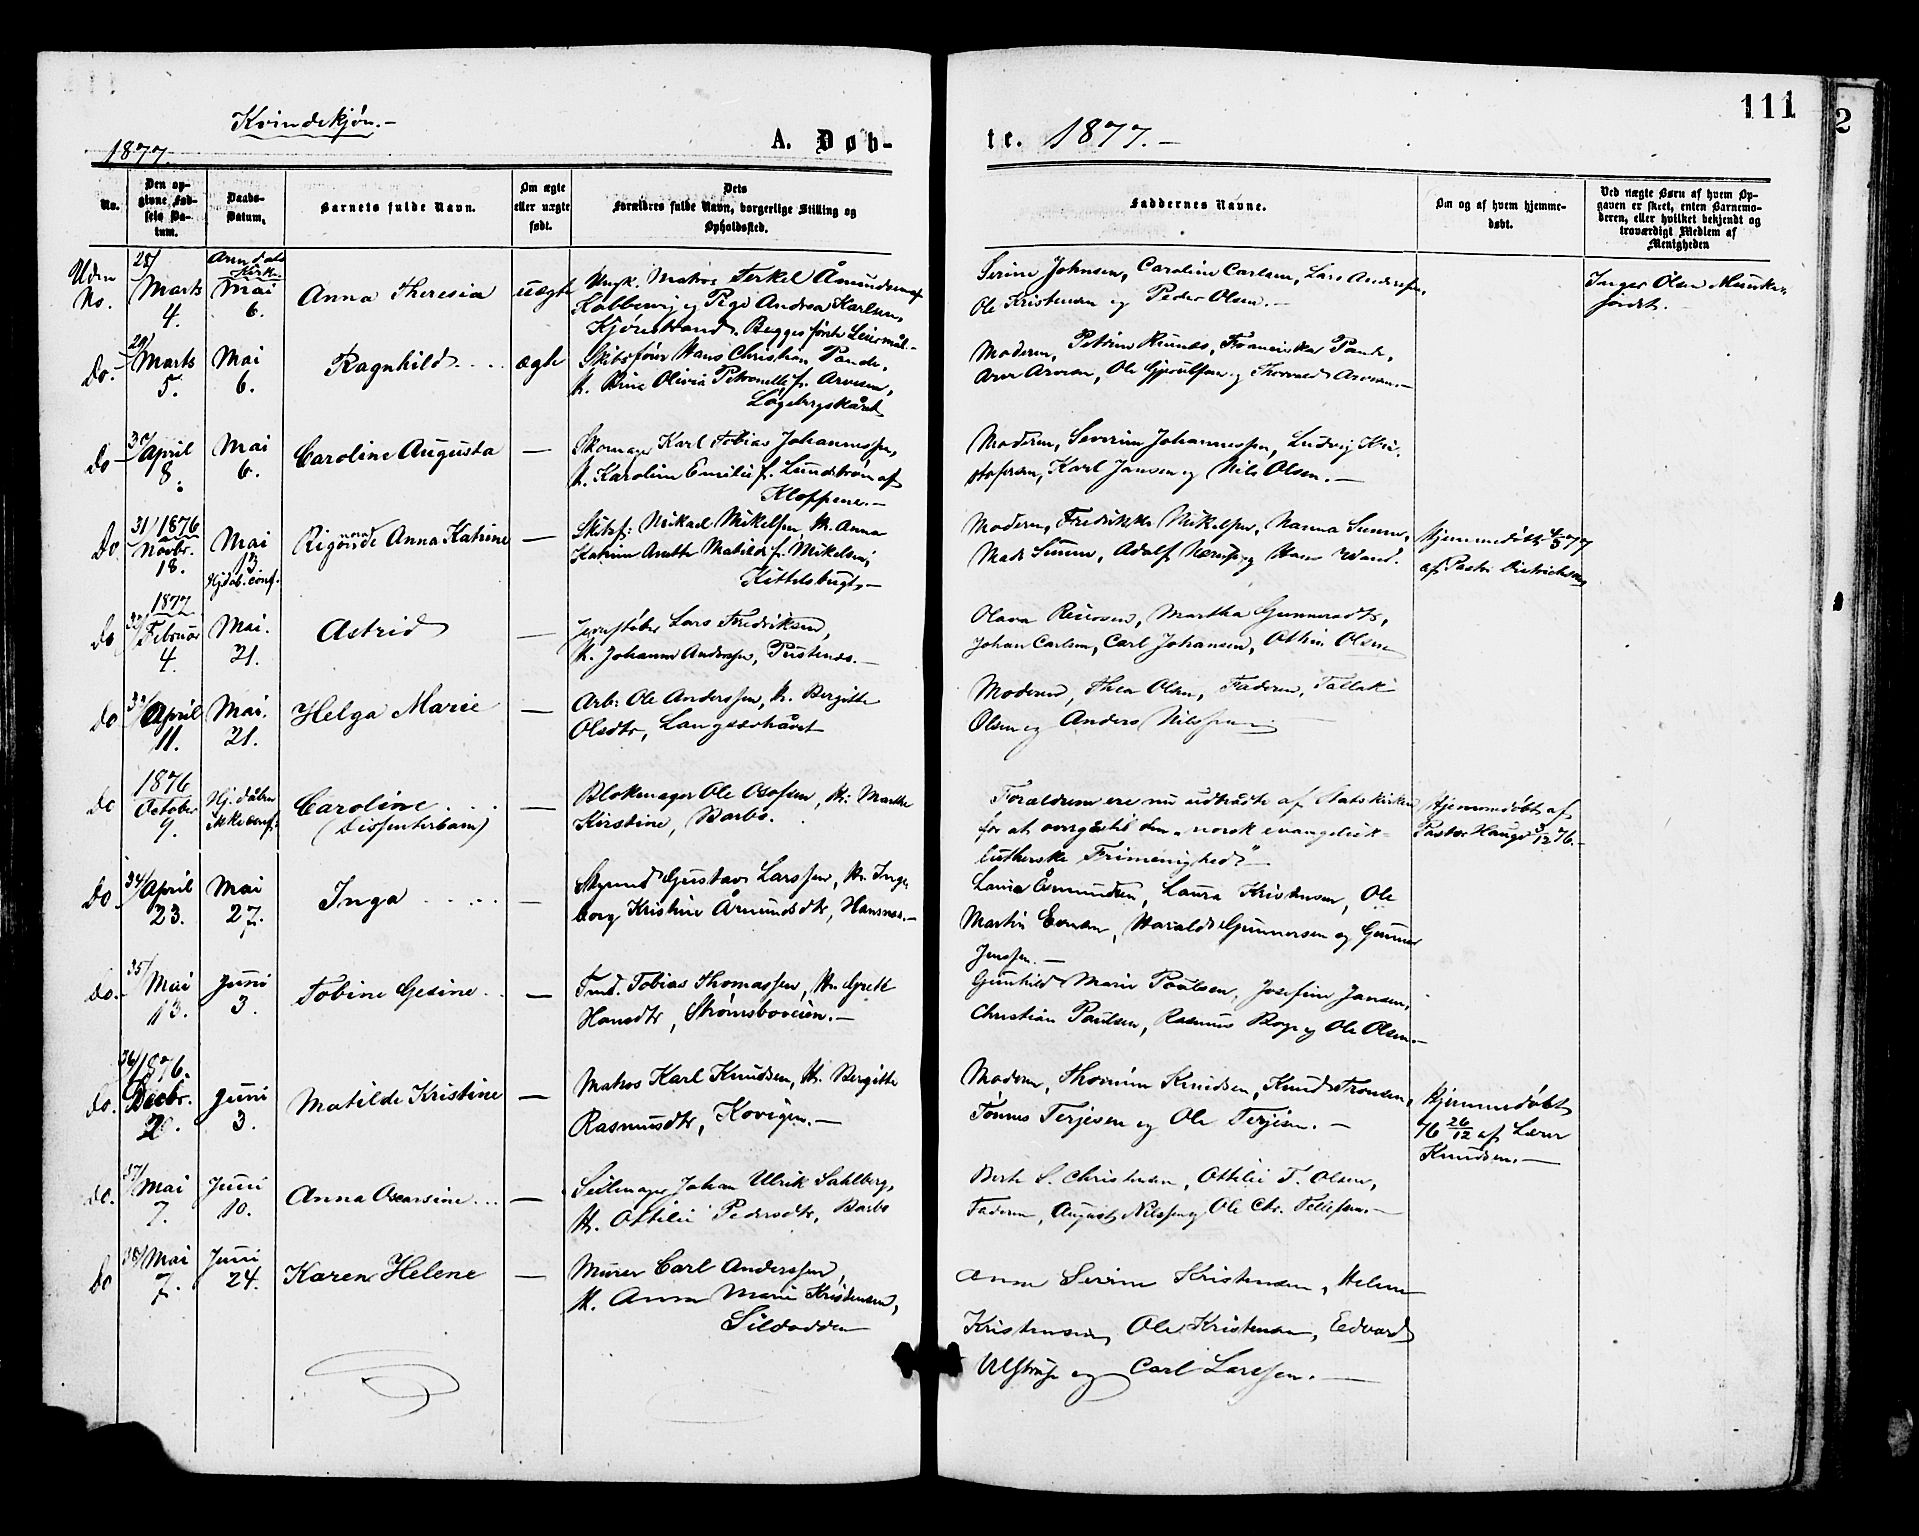 Kvindekjøn.-
1877.
A. Døb-
te. 1877.-
111
2
No.
Den op-
givne Fød-
sels Da-
tum.
Daabs-
Datum.
Barnets fulde Navn.
Om ægte
eller uægte
født.
Dets
Forældres fulde Navn, borgerlige Stilling og
Opholdssted.
Faddernes Navne.
Om og af hvem hjemme-
døbt.
Ved uægte Børn af hvem Op-
gaven er skeet, enten Barnemo-
deren, eller hvilket bekjendt og
troværdigt Medlem af
Menigheden
Uden
No.
28/
Marts
4.
Arendals
Kirke
Mai
6.
Anna Theresia
uægte
Ungk. Matros Terkel Åmundsen af
Kolbbervig og Pige Andrea Karlsen,
Kjørestrand. Begges første Leiermål-
Serine Johnsen, Caroline Carlsen, Lars Anderssen,
Ole Kristensen og Peder Olsen.-
Inger Olsen
Do.-
29/
Marts
5.
Mai
6.
Ragnhild....
ægte
Skibsfører Hans Christian Pande,
Olivia Petronelle f. Arvesen,
Moderen, Petrine Franciska Pande,
Arve Arvesen, Ole og Thorvald Arvesen.-
Do-
30/
April
8.
Mai
6.
Caroline Augusta
-
Skomager Karl Tobias Johannessen,
H. Karoline Emilie f. Lundstrøm af
Kloppene.-
Moderen, Severine Johannessen, Ludvig Kri-
stofersen, Karl Jansen og Nils Olsen.-
Do
31/ 1876
Novbr.
18.
Mai
13
Hjdøb. conf.
Anna Katrine
-
Skibsf: Mikael Mikelsen, H. Anna
Katrine Anette Matilde f. Mikelsen,
Kittelsbugt.-
Moderen, Fredrikke Mikelsen, Nanna
Adolf og Hans
Hjemmedøbt
af Pastor Dietrichson
Do
1877
32/
Februar
4.
Mai.
21.
Astrid
-
Jernstøber Lars Fredriksen,
H. Johanne Anderssen,
Olava Martha Gunneradtr,
Johan Carlsen, Carl Johansen, Ottine Olsen
Do
33/
April
11.
Mai.
21.
Helga Marie
-
Arb: Ole Anderssen, H. Bergitte
Olsdtr,
Moderen, Thea Olsen, Faderen, Tallak
Olsen og Anders Nilssen
Do
1876
October
9.
Hj. døbt
ikke conf.
Caroline....
(Dissenterbarn)
-
Blokmager Ole H. Marthe
Kirstine, Barbo.
Forældrene ere nu udtrådte af Statskirken
for at overgå til den „norsk evangelisk-
lutherske Frimenighed"
Hjemmedøbt af
Pastor Hauge 3/12 76.-
Do
34/
April
23.
Mai
27.
Inga.....
-
Gustav Larssen, H. Inge-
borg Kristine Åmundsdtr,
Åsmundsen, Laura Kristensen, Ole
Martin Harald Gunnersen og Gunner
Jenssen.-
Do.-
35/
Mai
13.
Juni
3.
Tobine Gesine..
-
Tobias Thomassen, H. Grete
Hansdtr, Strømsboveien.-
Gunhild Marie Poulsen, Josefine Jansen,
Christian Paulsen, Rasmus og Ole Olsen.-
Do.
36/
1876.
Decbr.
20.
Juni
3.
Matilde Kristine
-
Matros Karl Knudsen, H. Bergitte
Rasmusdtr, Kovigen.-
Moderen, Knudsen, Knud
Tønnes Terjesen og Ole Terjesen.-
Hjemmedøbt
76 26/12 af Lærer
Knudsen.-
Do.
37/
Mai
7.
Juni
10.
Anna Oscarsine...
-
Seilmager Johan Ulrik Sahlberg,
H. Ottilie Pedersdtr, Barbo
Berte S. Christensen, Ottilie T. Olsen,
Faderen, August Nilssen og Ole Chr. Tellefsen.-
Do
38/
Mai
7.
Juni
24.
Karen Helene
-
Murer Carl Anderssen,
H. Anna Marie Kristensen,
Sildodden
Anne Serine Kristensen, Helene
Kristensen, Ole Kristensen, Edvard
Ulstrup og Carl Larssen.-